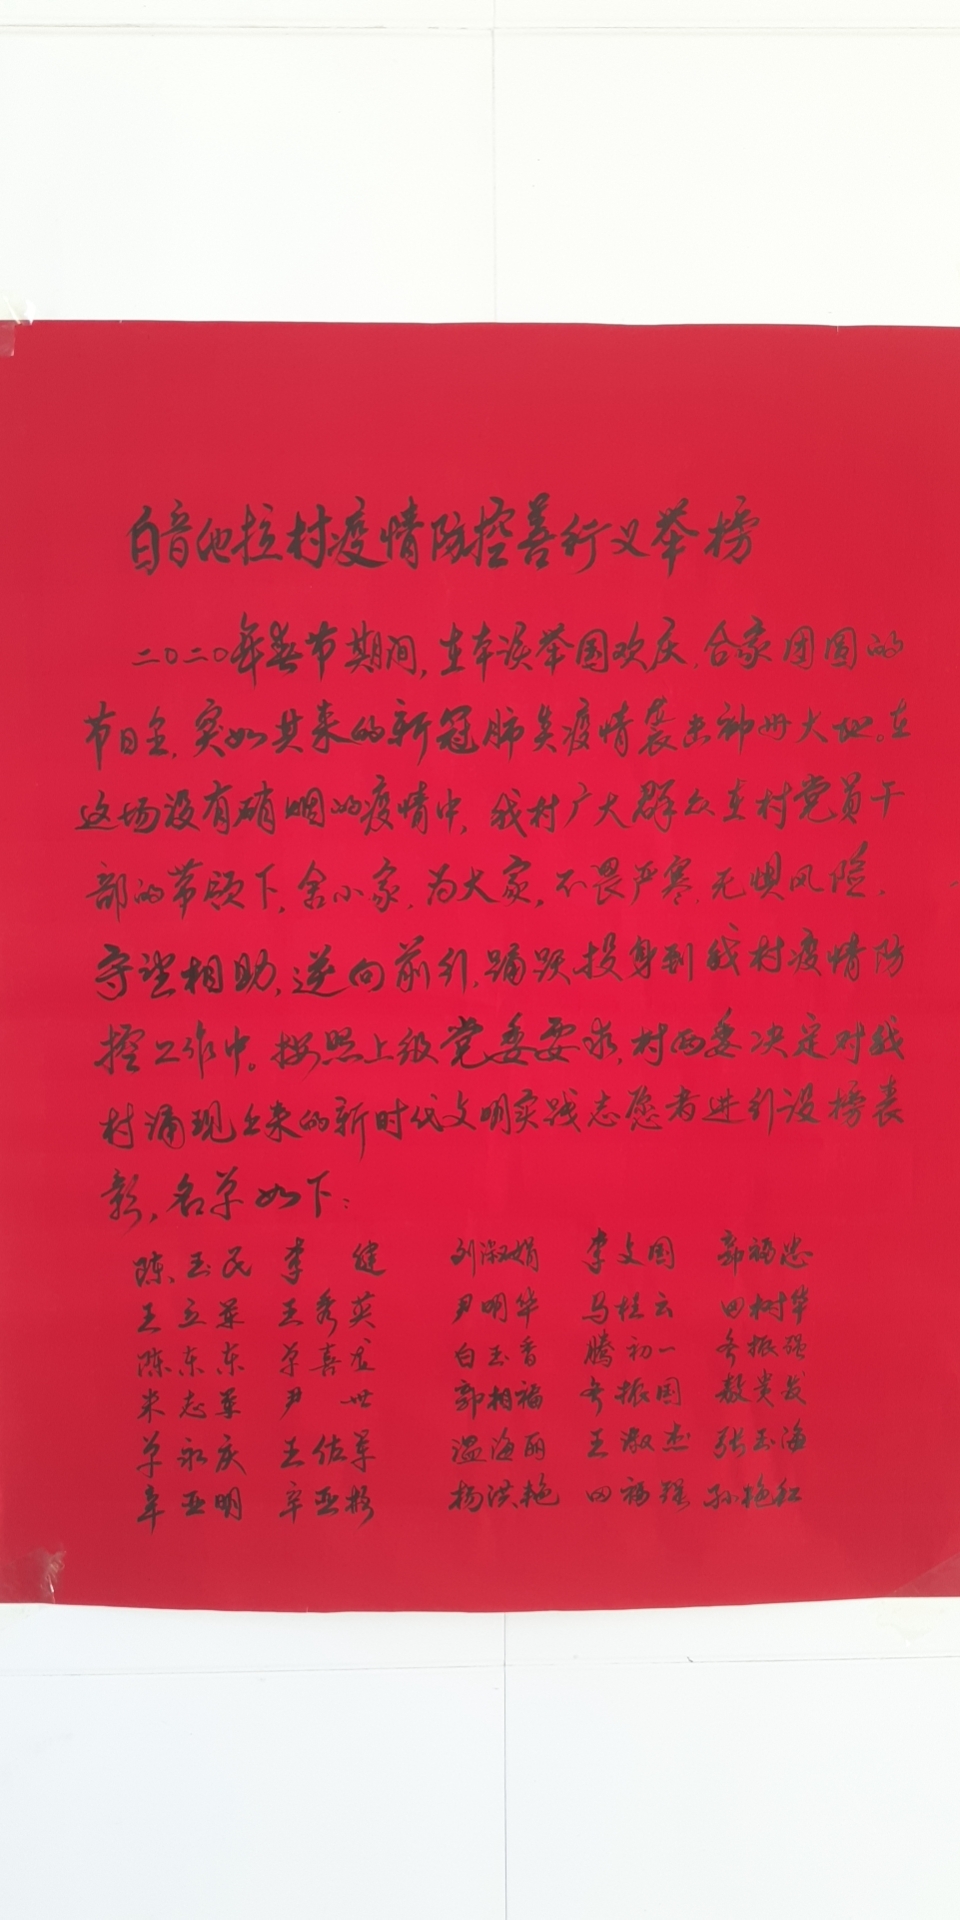 白音他拉村疫情防控善行义举榜
二〇二〇年春节期间,在本该举国欢庆,合家团圆的
节日里,突如其来的新冠肺炎疫情袭击神州大地。在
这场没有硝烟的疫情中,我村广大群众在村党员干
部的带领下,舍小家,为大家,不畏严寒,无惧风险,
守望相助,逆向前行,踊跃投身到我村疫情防
控工作中。按照上级党委要求,村两委决定对我
村涌现出来的新时代文明实践志愿者进行设榜表
彰,名单如下:
陈玉民 李健 刘淑娟 李文国 郭福忠
王立军 王秀英 尹明华 马桂云 田树华
陈东东 单喜龙 白玉香 腾初一 振强
米志军 尹世 郭相福 振国 敖贵发
单永庆 王佐军 温海丽 王淑杰 张玉海
辛亚明 辛亚 杨洪艳 田福强 孙艳红